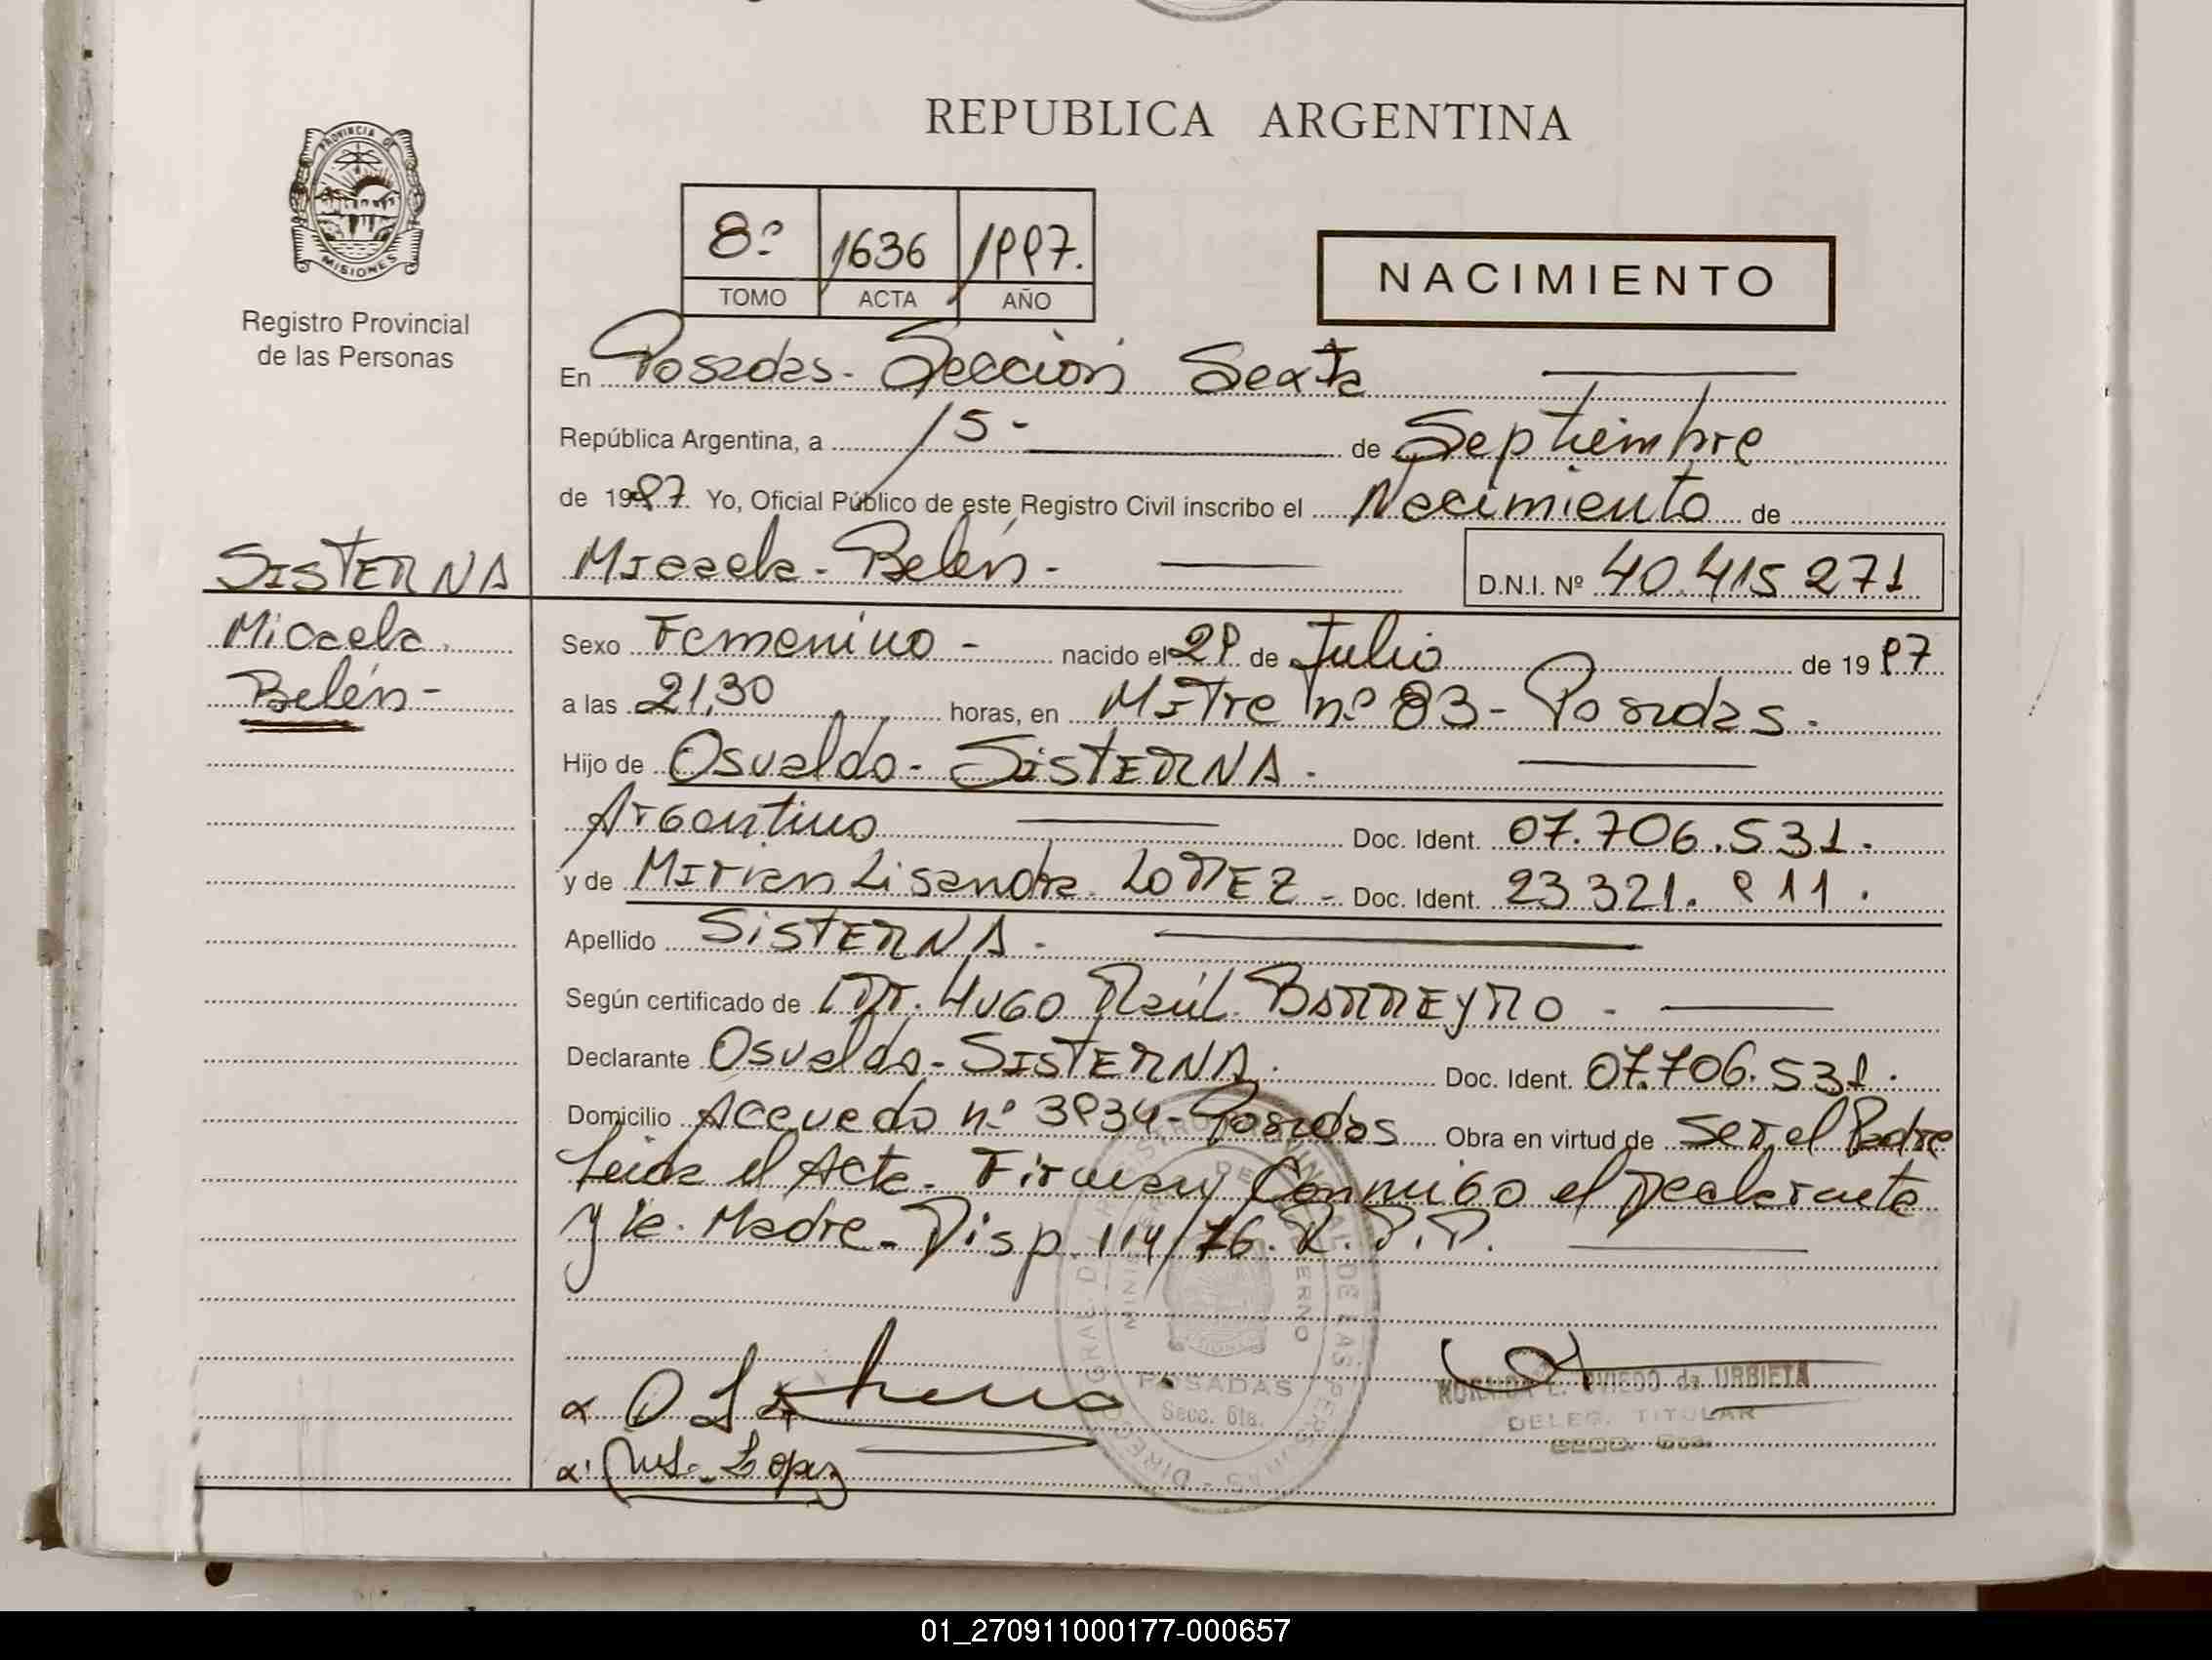 REPUBLICA ARGENTINA
PROVINCIA DE
MISIONES
Registro Provincial
de las Personas
8º 1636 1997.
TOMO ACTA AÑO
NACIMIENTO
En Posadas - Sección Sexta
República Argentina, a 15 - de Septiembre
de 1997. Yo, Oficial Público de este Registro Civil inscribo el Nacimiento de
SISTERNA Micaela - Belén - D.N.I. Nº 40.415.271
Micaela
Belén -
Sexo Femenino - nacido el 29 de Julio de 1997
a las 21,30 horas, en Mitre nº 83 - Posadas.
Hijo de Osvaldo - SISTERNA.
Argentino Doc. Ident. 07.706.531.
y de Mirian Lisandra LOPEZ - Doc. Ident. 23.321.911.
Apellido SISTERNA.
Según certificado de Dr. HUGO Raúl BARREYRO -
Declarante Osvaldo - SISTERNA. Doc. Ident. 07.706.531.
Domicilio Acevedo nº 3934 - Posadas Obra en virtud de ser el Padre
Leída el Acta - Firman Conmigo el Declarante
y la Madre - Disp. 114/76. R.P.P.
POSADAS
Secc. 6ta.
OVIEDO de URBIETA
DELEG. TITULAR
SECC. 6ta.
Lopez
01_270911000177-000657